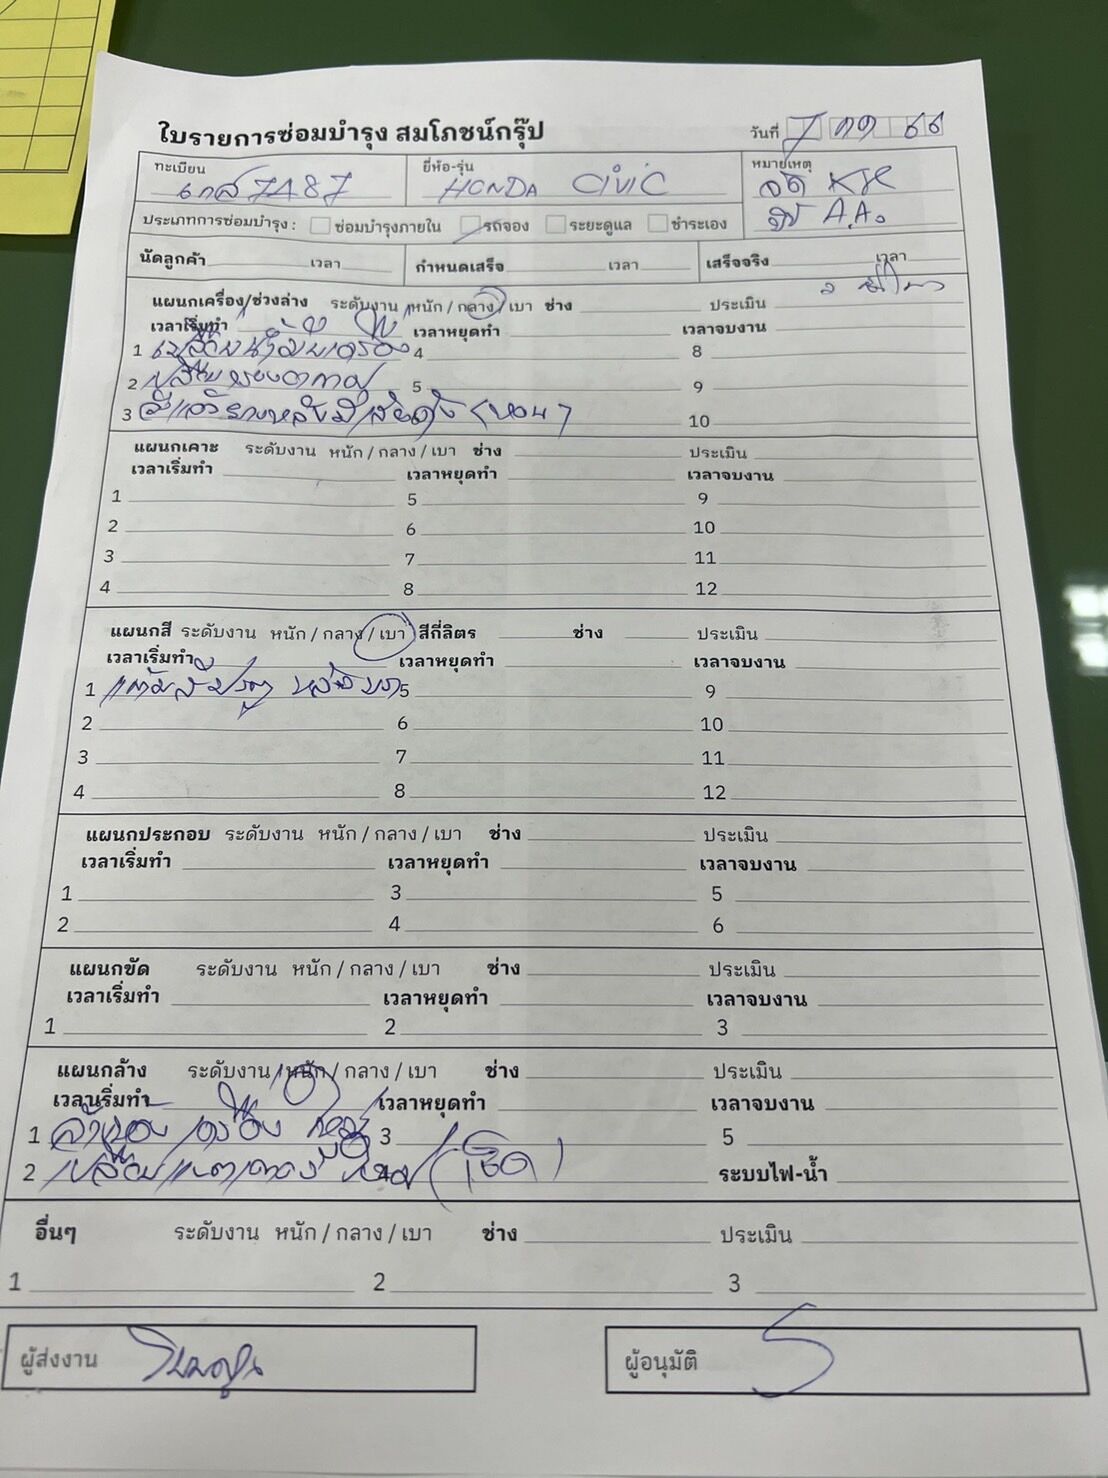 ใบรายการซ่อมบำรุง สมโภชน์กรุ๊ป
วันที่ 7 66
ทะเบียน 7487 ยี่ห้อ-รุ่น HONDA CIVIC หมายเหตุ
A.A.
ประเภทการซ่อมบำรุง : ซ่อมบำรุงภายใน รถจอง ระยะดูแล ชำระเอง
นัดลูกค้า เวลา กำหนดเสร็จ เวลา เสร็จจริง เวลา
แผนกเครื่อง/ช่วงล่าง ระดับงาน หนัก / กลาง / เบา ช่าง ประเมิน
เวลาเริ่มทำ เวลาหยุดทำ เวลาจบงาน
1 เปลี่ยนน้ำมันเครื่อง 4 8
2 เปลี่ยน 5 9
3 ยางหลังมีเสียงดัง (หอน) 10
แผนกเคาะ ระดับงาน หนัก / กลาง / เบา ช่าง ประเมิน
เวลาเริ่มทำ เวลาหยุดทำ เวลาจบงาน
1 5 9
2 6 10
3 7 11
4 8 12
แผนกสี ระดับงาน หนัก / กลาง / เบา สีกี่ลิตร ช่าง ประเมิน
เวลาเริ่มทำ เวลาหยุดทำ เวลาจบงาน
1 แต้มสีประตู หลังขวา 5 9
2 6 10
3 7 11
4 8 12
แผนกประกอบ ระดับงาน หนัก / กลาง / เบา ช่าง ประเมิน
เวลาเริ่มทำ เวลาหยุดทำ เวลาจบงาน
1 3 5
2 4 6
แผนกขัด ระดับงาน หนัก / กลาง / เบา ช่าง ประเมิน
เวลาเริ่มทำ เวลาหยุดทำ เวลาจบงาน
1 2 3
แผนกล้าง ระดับงาน หนัก / กลาง / เบา ช่าง ประเมิน
เวลาเริ่มทำ เวลาหยุดทำ เวลาจบงาน
1 ล้างห้องเครื่อง 3 5
2 เปลี่ยนแบตเตอรี่ (เช็ค) 4 ระบบไฟ-น้ำ
อื่นๆ ระดับงาน หนัก / กลาง / เบา ช่าง ประเมิน
1 2 3
ผู้ส่งงาน ผู้อนุมัติ